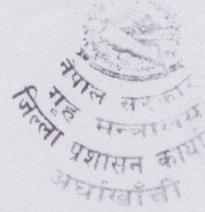 नेपाल सरकार
गृह मन्त्रालय
जिल्ला प्रशासन कार्या
अर्घाखाँची